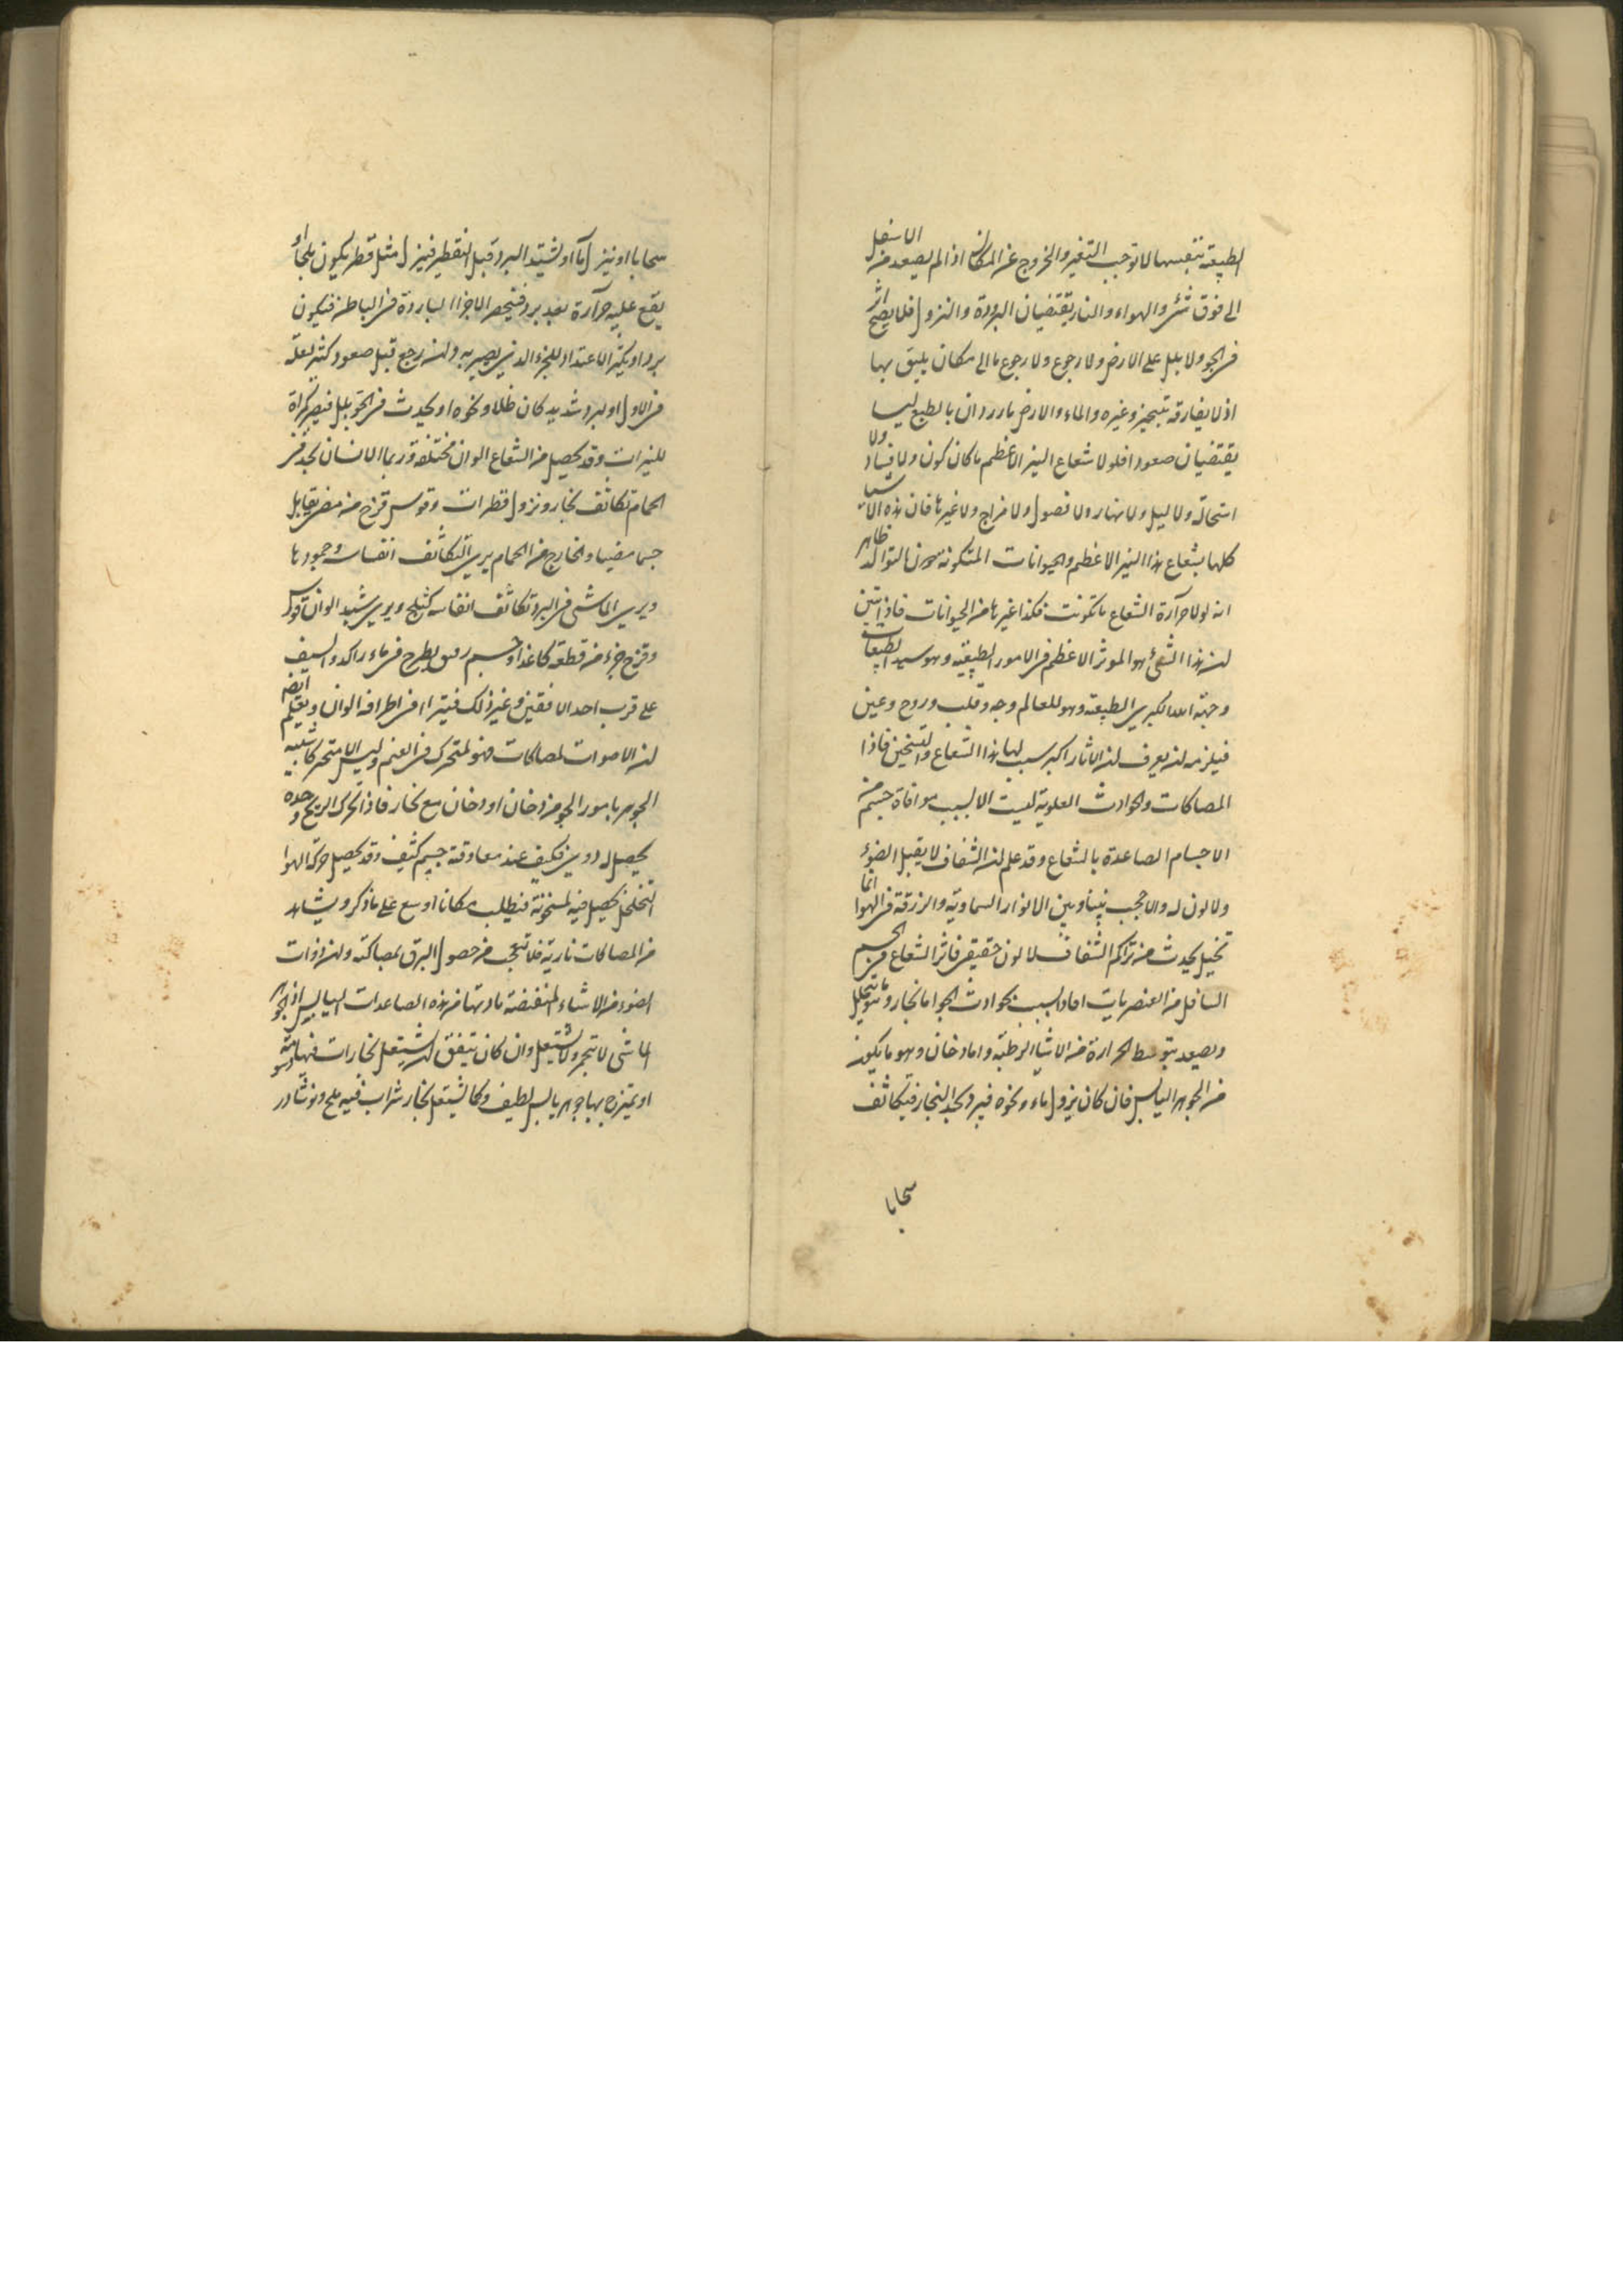 الطبيعة بنفسها لا توجب التغير والخروج عن المكان اذ الم يصعد من الاسفل
الى فوق شئ والهواء والنار يقتضيان البرودة والنزول فلا يصح اثر
فى الجو ولا بلل على الارض ولا رجوع ولا رجوع ما الى مكان يليق بها
اذ لا يفارقه بتبحير وغيره والماء والارض باردان بالطبع ليسا
يقتضيان صعودا فلولا شعاع النير الاعظم ما كان كون ولا فساد ولا
استحالة ولا ليل ولا نهار ولا فصول ولا مزاج ولا غيرها فان هذه الاشيا
كلها بشعاع هذا النير الاعظم والحيوانات المتكونة بالتوالد ظاهر
انه لولا حرارة الشعاع ما تكونت فكذا غيرها من الحيوانات فاذا تبين
ان هذا الشئ هو الموثر الاعظم فى الامور الطبيعية وهو سيد الطبيعات
وجهة الله الكبرى الطبيعة وهو للعالم وجه وقلب وروح وعين
فيلزمه ان يعرف ان الاثار اكبر سبب لها هذا الشعاع والتسخين فاذا
المصاكات والحوادث العلوية ليست الا بسبب موافاة جسم من
الاجسام الصاعدة بالشعاع وقد علم ان الشفاف لا يقبل الضوء
ولا لون له والا حجب بيننا وبين الانوار السماوية والزرقة فى الهوا انما
تخيل يحدث من تراكم الشفاف لا لون حقيقى فاثر الشعاع فى الجسم
السافل من العنصريات افاد سبب حوادث الجو اما بخار وهو ما يتحلل
ويصعد بتوسط الحرارة من الاشيا الرطبة واما دخان وهو ما يكون
من الجوهر اليابس فان كان نزول ماء ونحوه فيبرد كذا البخار فيتكاثف
سحابا
سحابا او ينزل ماء او يشتد البرد قبل التقطير فينزل مثل قطر يكون ثلجا او
يقع عليه حرارة بعد برد فينحصر الاجزا الباردة فى الباطن فيكون
بردا ويكثر الاعتداد للجزء الذى يصير به وان رجع قبل صعود كثير لعلة
فى الاول او لبرد شديد كان طلا ونحوه او يحدث فى الجو بلل فيصير كمراة
للنيرات وقد يحصل من الشعاع الوان مختلفة وربما الانسان يجد فى
الحمام تكاثف بخار ونزول قطرات وقوس قزح من مضئ يقابل
جسما مضيا والخارج من الحمام يرى التكاثف انفاسه وجمودها
ويرى الماشى فى البرد تكاثف انفاسه كثلج ويرى شبه الوان قوس
وقزح جزء من قطعة كاغذ او جسم رقيق يطرح فى ماء راكد والسيف
على قرب احد الافقين وغير ذلك فيتراا فى اطرافه الوان ويعلم ايضا
ان الاصوات لمصاكات فهو لمتحرك فى الغيم وليس الا متحركا شبيه
الجوهر بامور الجو من دخان او دخان مع بخار فاذا تحرك الريح وحده
يحصل له دوى فكيف عند معاوقة جسم كثيف وقد يحصل حركة الهوا
لتخلخل يحصل فيه لسخونة فيطلب مكانا اوسع على ما ذكر ويشاهد
من المصاكات نارية فلا تتعجب من حصول البرق لمصاكته وان ذوات
الضوء من الاشياء المنقضة مادتها من هذه الصاعدات اليابس اذ الجوهر
المائى لا يتجمر ولا يشتعل وان كان يتفق ان يشتعل بخارات فيها دسومة
او يمتزج بها جوهر يابس لطيف وكما يشتعل بخار شراب فيه ملح ونوشادر